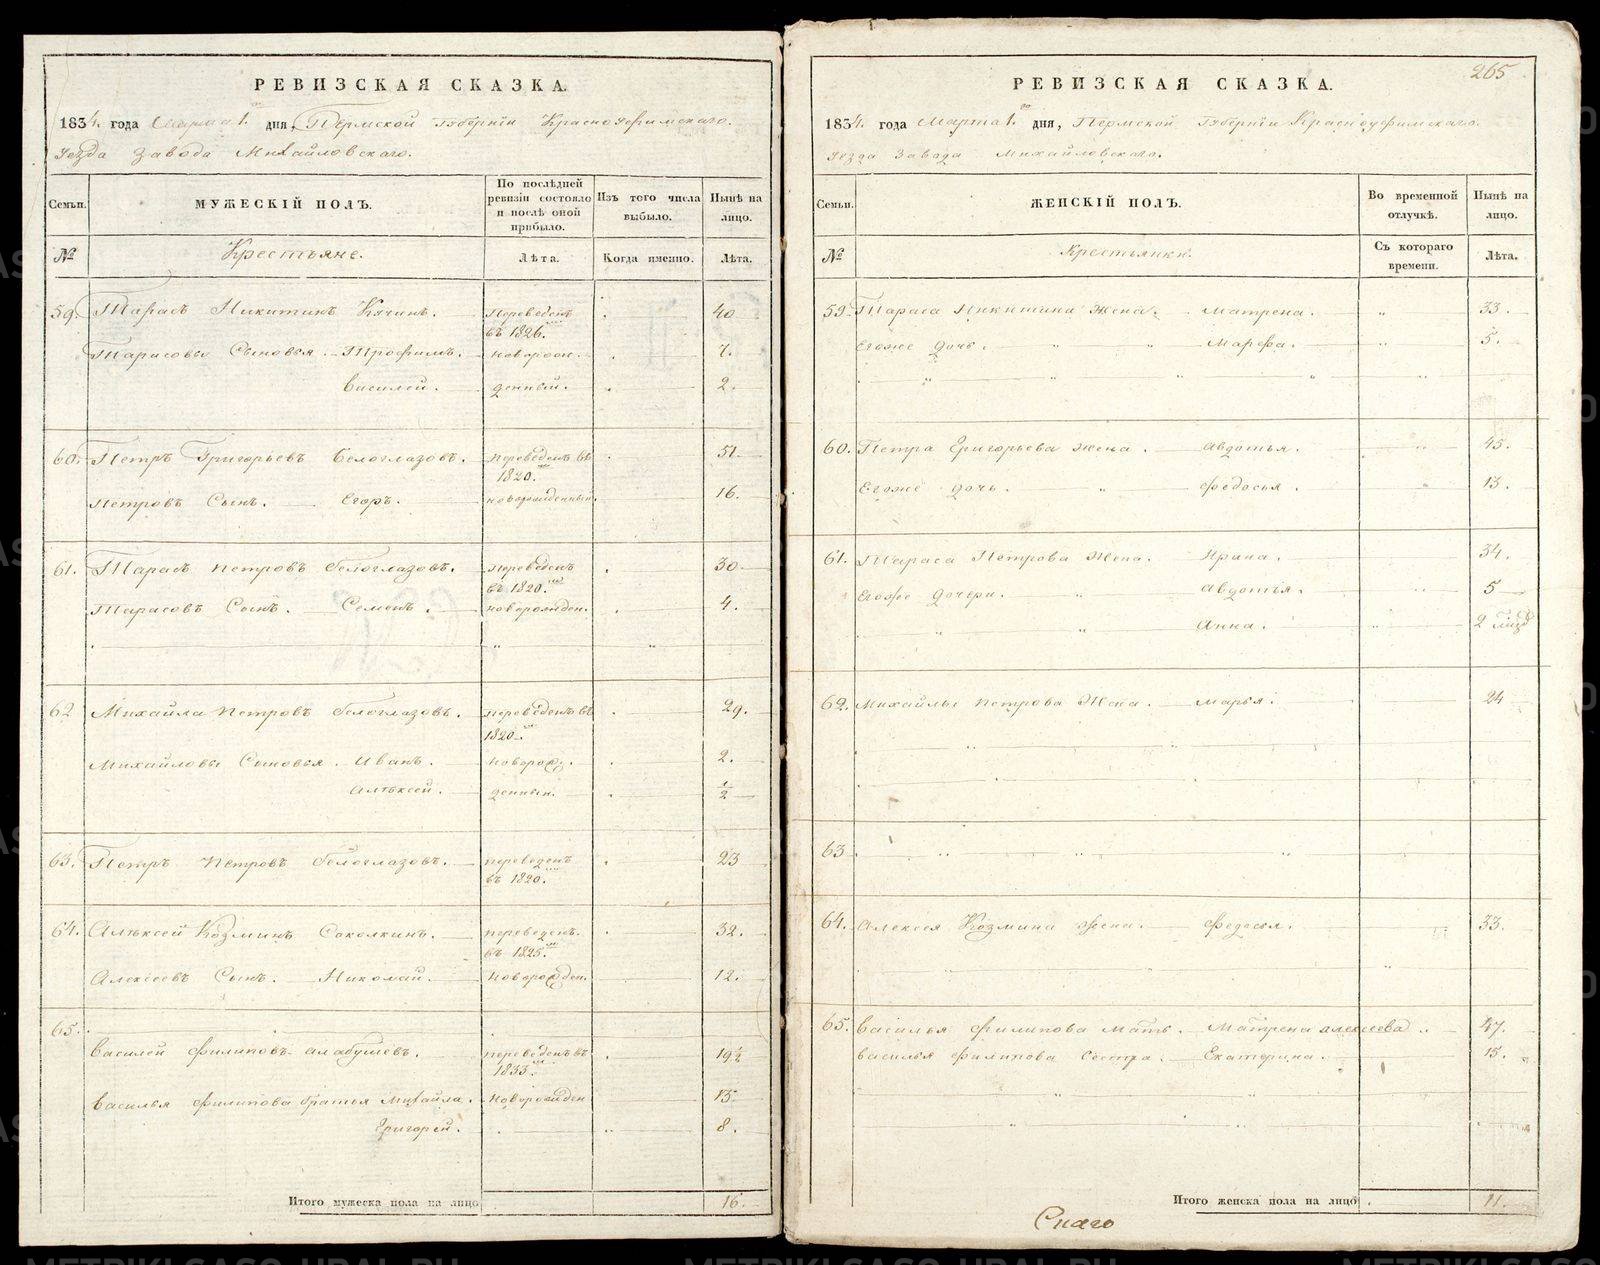 РЕВИЗСКАЯ СКАЗКА.
1834. года Марта 1. дня, Пермской Губернiи Красноуфимскаго.
Уезда Завода Михайловскаго.
Семьи. МУЖЕСКІЙ ПОЛЪ. По послѣдней ревизіи состояло и послѣ оной прибыло. Изъ того числа выбыло. Нынѣ на лицо.
№ Крестьяне. Лѣта. Когда именно. Лѣта.
59. Тарасъ Никитинъ Переведенъ въ 1826. 40
Тарасовы Сыновья. Трофимъ. новорож- 7.
Василей. денныи. 2.
60. Петръ Григорьевъ Белоглазовъ. переведенъ въ 1820. 51
Петровъ Сынъ. Егоръ. новорожденный. 16.
61. Тарасъ Петровъ белоглазовъ. переведенъ въ 1820. 30
Тарасовъ Сынъ. Семенъ. новорожден. 4.
62 Михайла Петровъ белоглазовъ. переведенъ въ 1820. 29.
Михайловы Сыновья. Иванъ. новорож. 2.
Алѣксей. денныи. 1/2
63. Петръ Петровъ белоглазовъ. переведенъ въ 1820. 23
64. Алѣксей Козминъ Соколкинъ. переведенъ. въ 1825. 32.
Алексеевъ Сынъ. Николай. новорожден. 12.
65.
Василей Филиповъ алабушевъ. переведенъ въ 1833. 19 1/2
Василья Филипова братья Михайла. Новорожден 15
Григорей. 8.
Итого мужеска пола на лицо 16.
265
РЕВИЗСКАЯ СКАЗКА.
1834. года Марта 1. дня, Пермской Губернiи Красноуфимскаго.
Уезда Завода Михайловскаго.
Семьи. ЖЕНСКІЙ ПОЛЪ. Во временной отлучкѣ. Нынѣ на лицо.
№ Крестьянки. Съ котораго времени. Лѣта.
59. Тараса Никитина жена. Матрена. 33.
Егоже дочь. Марфа. 5.
60. Петра Григорьева жена. авдотья. 45.
Егоже дочь. федосья. 13.
61. Тараса Петрова жена. Ирина. 34.
Егоже дочери. авдотья. 5
Анна. 2
62. Михайлы петрова Жена. марья. 24
63
64. Алексея Козмина жена. Федосья. 33.
65. Василья Филипова Мать. Матрена алексеева 47.
Василья Филипова Сестра. Екатерина. 15.
Итого женска пола на лицо 11.
METRIKI.GASO-URAL.RU
METRIKI.GASO-URAL.RU